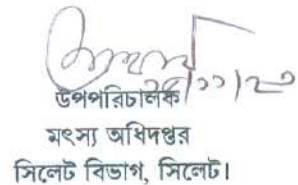 উপপরিচালক
মৎস্য অধিদপ্তর
সিলেট বিভাগ, সিলেট।